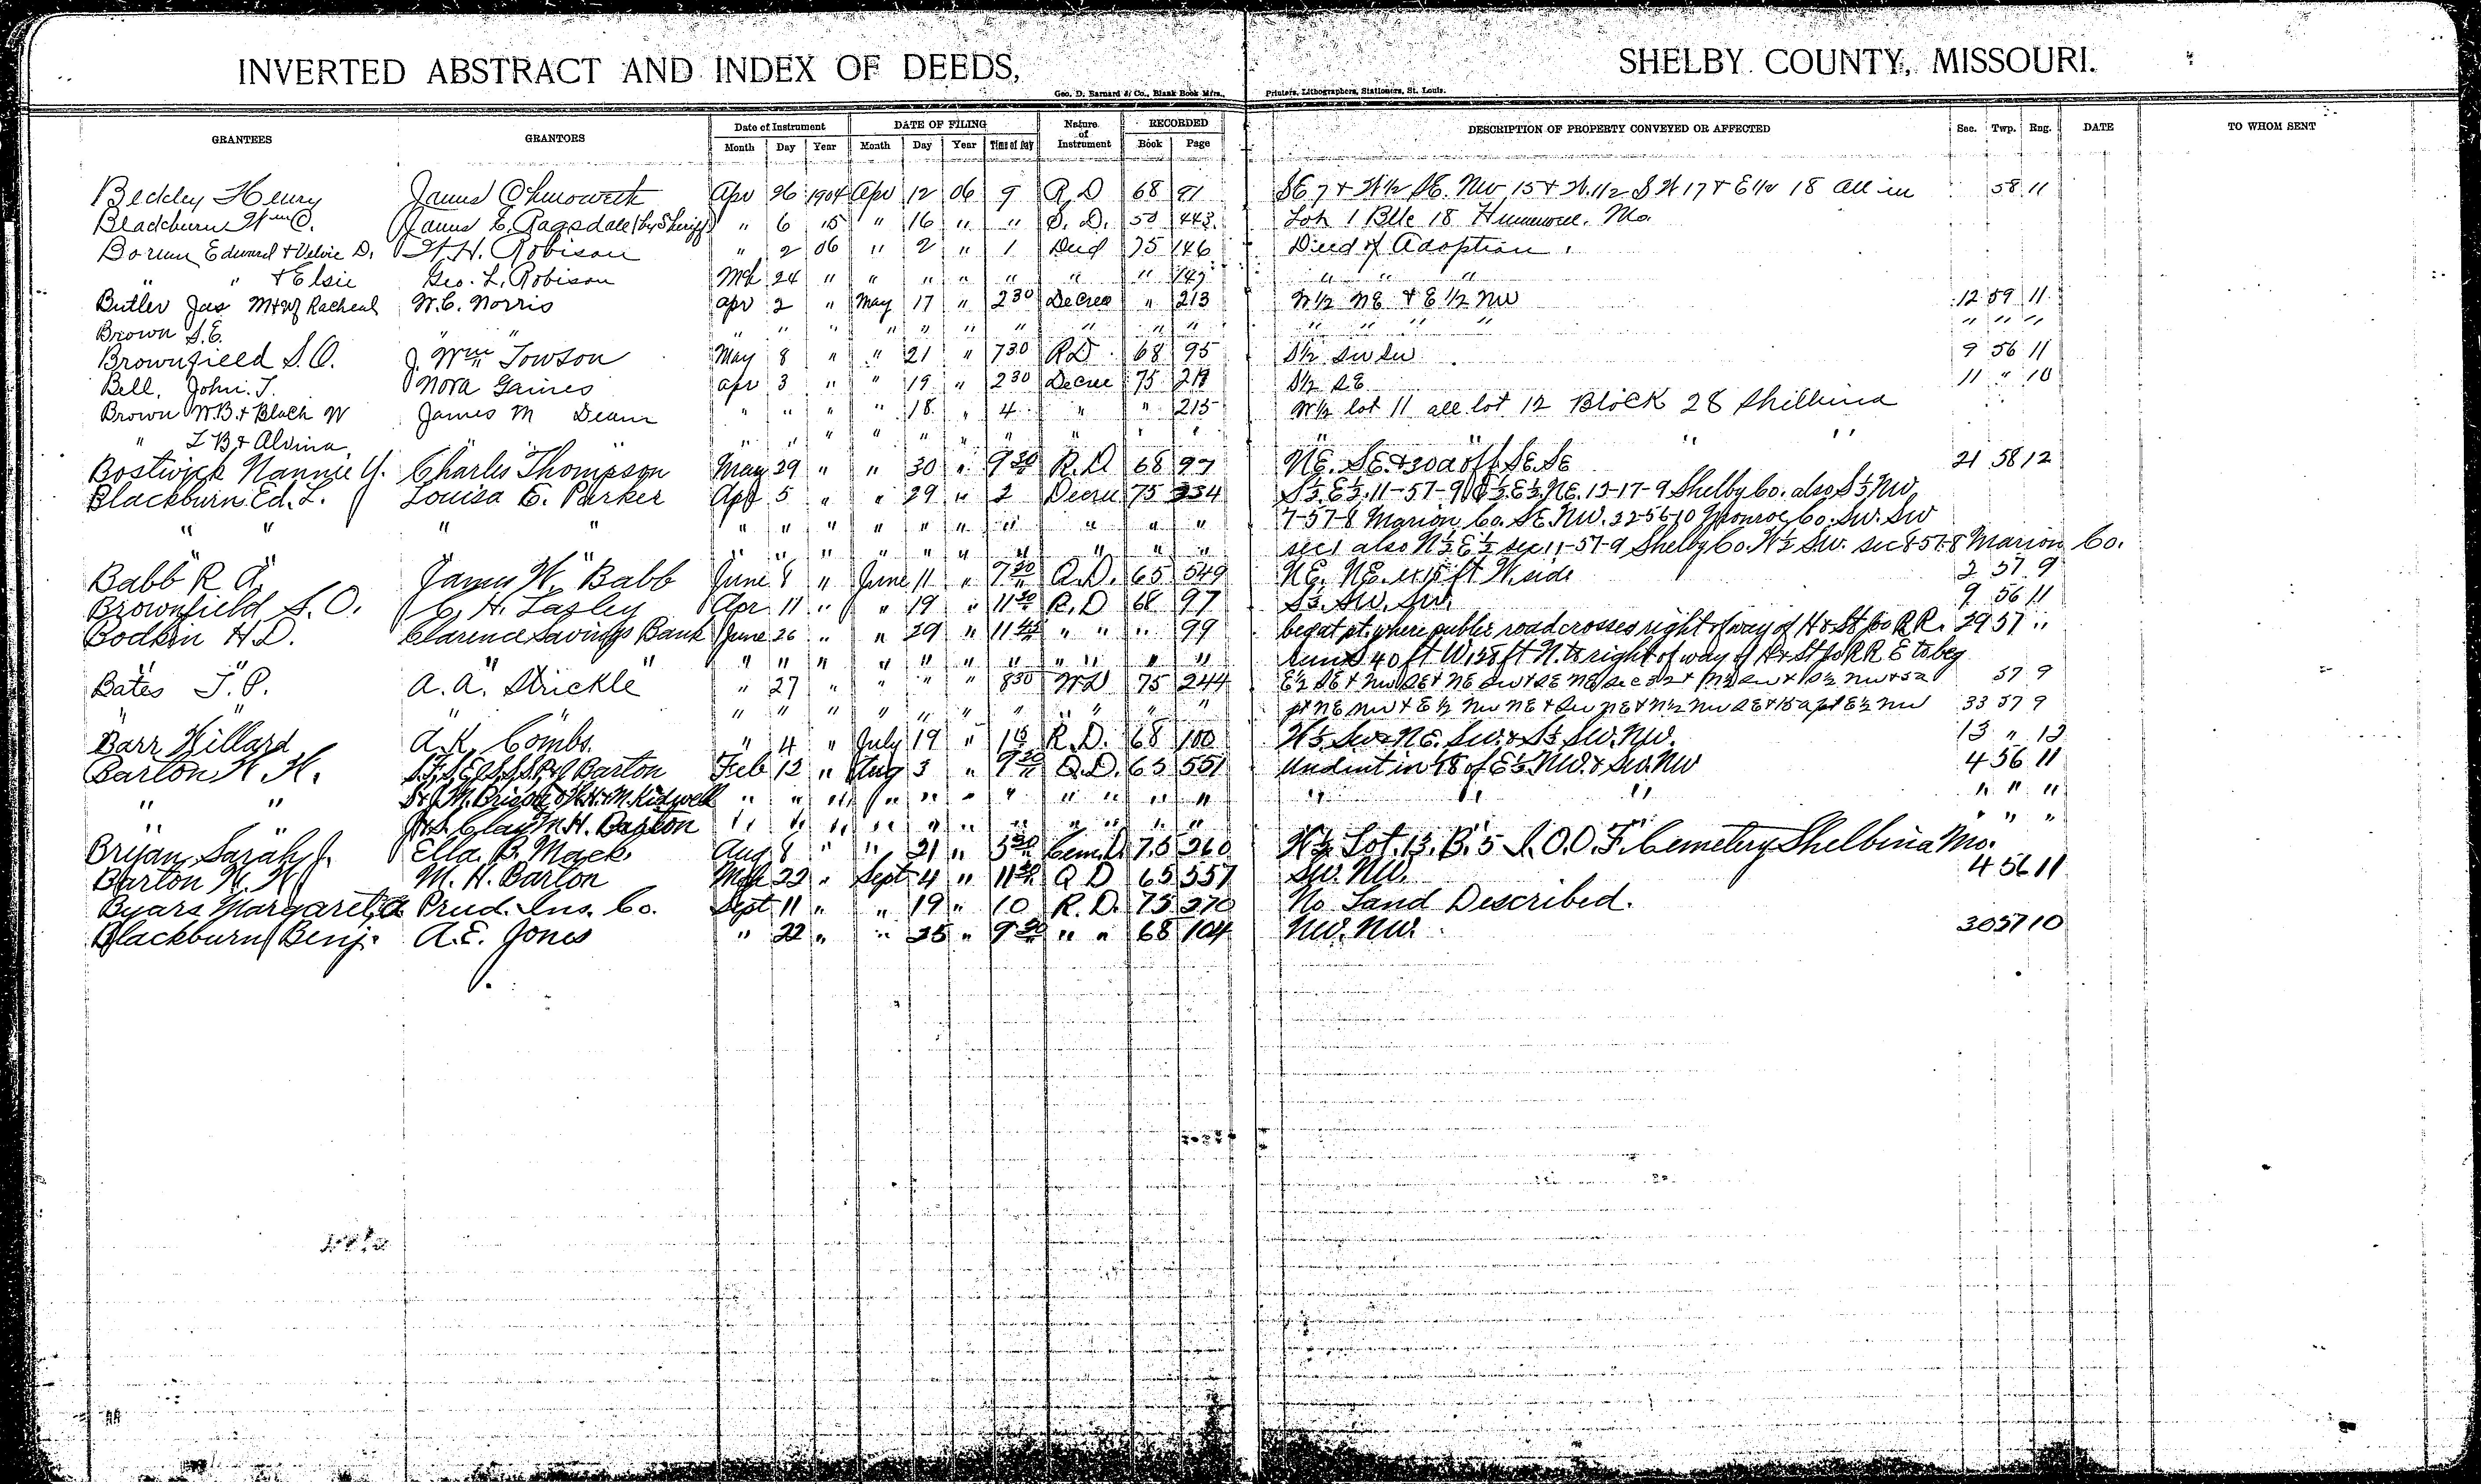 INVERTED ABSTRACT AND INDEX OF DEEDS, SHELBY COUNTY, MISSOURI.
Geo. D. Barnard & Co., Blank Book Mfrs., Printers, Lithographers, Stationers, St. Louis.
GRANTEES GRANTORS Date of Instrument DATE OF FILING Nature of Instrument RECORDED DESCRIPTION OF PROPERTY CONVEYED OR AFFECTED Sec. Twp. Rng. DATE TO WHOM SENT
Month Day Year Month Day Year Time of Day Book Page
Beckley Henry James Chenoweth Apr 26 1904 Apr 12 06 9 R.D 68 91 SE 7 & W½ SE. NW 15 & W.1/2 S W 17 & E1/2 18 all in 58 11
Blackburn Wm C. James E. Ragsdale (by Sheriff) " 6 " 16 " " S.D. 50 443 Lot 1 Blk 18 Hunnewell. Mo.
Edward & Velvie D. W.H. Robison " 2 06 " 2 " 1 Deed 75 146 Deed of Adoption
" " & Elsie Geo. L. Robison Mch 24 " " " " " " " 147 " " "
Butler Jas M & Wf Racheal W.C. Norris apr 2 " May 17 " 2 30 Decree " 213 W 1/2 NE & E 1/2 NW 12 59 11
Brown S.E. " " " " " " " " " " " " " " " " " " "
Brownfield S.O. J. Wm Towson May 8 " " 21 " 7 30 RD 68 95 S½ SW SW 9 56 11
Bell, John. T. Nora Gaines apr 3 " " 19 " 2 30 Decree 75 S½ SE 11 " 10
Brown W.B. & Black W James M Dean " " " " 18 " 4 " " 215 W½ lot 11 all lot 12 Block 28 Shelbina
" & Alvina " " " " " " " " " " " " " " " "
Bostwick Nannie Y. Charles Thompson May 29 " " 30 " 9 30 R.D 68 97 NE. SE. & 30a off SE. SE 21 58 12
Blackburn Ed. L. Louisa E. Parker Apr 5 " " 29 " 2 Decree 75 234 S½ E½ 11-57-9 E½ NE. 15-17-9 Shelby Co. also S½ NW
" " " " " " " " " " " " " " 7-57-8 Marion Co. SE. NW. 22-56-10 Monroe Co. SW. SW
" " " " " " " " " " " " " " sec 1 also N½ E½ sec 11-57-9 Shelby Co. W½ SW. sec 8-57-8 Marion Co.
Babb R A. James W. Babb June 8 " June 11 " 7 30 Q.D. 65 549 NE. NE. ex 15 ft W. side 2 57 9
Brownfield S.O. C. H. Lasley Apr 11 " " 19 " 11 30 R.D 68 97 S½. SW. SW. 9 56 11
Bodkin H.D. Clarence Savings Bank June 26 " " 29 " 11 45 " " " 99 beg at pt. where public road crosses right of way of H & St Jo R R. 29 57 "
" " " " " " " " " " " " " " " runs S 40 ft W 128 ft N. to right of way of H & St Jo R R E to beg
Bates T. P. A. A. Strickle " 27 " " " " 8 30 WD 75 244 E½ SE & NW SE & NE SW & SE NE sec 32 & 57 9
" " " " " " " " " " " " " " " pt NE NW & E ½ NW NE & SW NE & N½ NW SE & 15 a pt E½ NW 33 57 9
Barr Willard A.K. Combs. " 4 " July 19 " R.D. 68 100 13 " 12
Barton W. H. Barton Feb 12 " Aug 3 " 9 30 Q.D. 65 551 Und int in 1/8 of E½ NW. & SW. NW 4 56 11
" " Kidwell " " " " " " " " " " " " " " " " "
" " Clay M. H. Barton " " " " " " " " " " " " " " "
Bryan Sarah J. Ella B. Mack Aug 8 " " 21 " 3 30 Cem.D. 75 260 W½ Lot. 13. B. 5 I.O.O.F. Cemetery Shelbina Mo.
Barton W. H. M. H. Barton 22 " Sept 4 " Q D 65 557 SW. NW. 4 56 11
Byars Margaret A Prud. Ins. Co. Sept 11 " " 19 " 10 R.D. 75 270 No Land Described.
Blackburn Benj. A.E. Jones " 22 " " 25 " 9 30 " " 68 104 NW. NW. 30 57 10